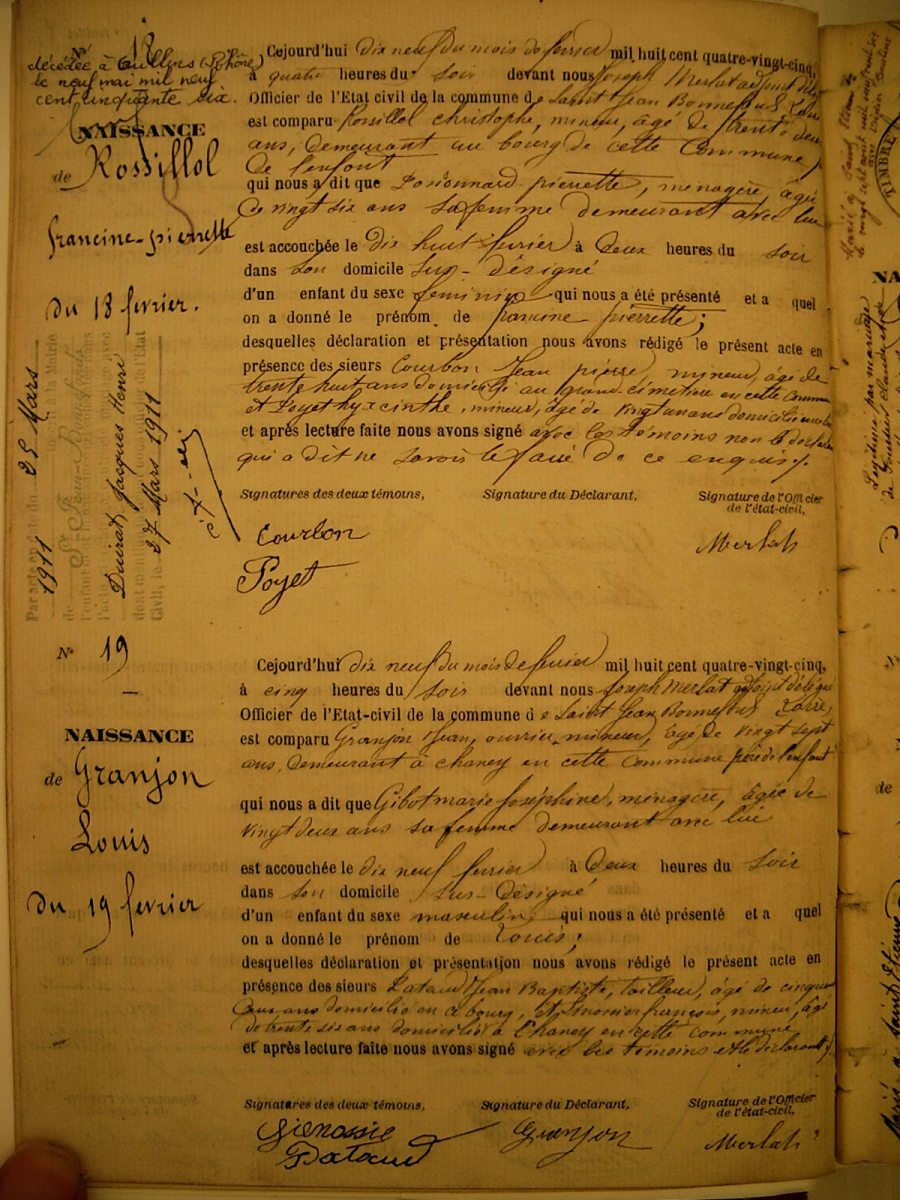 N° 18
décédée à Oullins (Rhône)
le neuf mai mil neuf
cent cinquante six.
NAISSANCE
de Rossillol
francine-pierrette
du 18 fevrier.
Par acte en date du 25 Mars
1911
Duirat, Jacques Henri
27 Mars 1911
Cejourd'hui dix neuf du mois de fevrier mil huit cent quatre-vingt-cinq,
à quatre heures du soir devant nous Joseph Merlat adjoint
Officier de l'Etat civil de la commune de Saint Jean Bonnefonds Loire
est comparu Rossillol christophe, mineur, âgé de trente deux
ans, demeurant au bourg de cette commune,
de l'enfant
qui nous a dit que pierrette, ménagère, âgée
de vingt six ans sa femme demeurant avec lui
est accouchée le dix huit fevrier à deux heures du soir
dans son domicile sus-désigné
d'un enfant du sexe feminin qui nous a été présenté et a quel
on a donné le prénom de francine pierrette;
desquelles déclaration et présentation nous avons rédigé le présent acte en
présence des sieurs Courbon Jean pierre, mineur, âgé de
trente huit ans domicilié au grand cimetière en cette commune
et Poyet hyacinthe, mineur, âgé de vingt un ans domicilié
et après lecture faite nous avons signé avec les témoins non le déclarant
qui a dit ne savoir le faire de ce enquis.
Signatures des deux témoins, Signature du Déclarant, Signature de l'Officier
de l'état-civil,
Courbon
Merlat
Poyet
N° 19
NAISSANCE
de Granjon
Louis
du 19 fevrier
Cejourd'hui dix neuf du mois de fevrier mil huit cent quatre-vingt-cinq,
à cinq heures du soir devant nous Joseph Merlat adjoint délégué
Officier de l'Etat-civil de la commune de Saint Jean Bonnefonds Loire,
est comparu Granjon Jean, ouvrier mineur, âgé de vingt sept
ans, demeurant à chaney en cette commune père de l'enfant
qui nous a dit que Gibot marie Joséphine, ménagère, âgée de
vingt deux ans sa femme demeurant avec lui
est accouchée le dix neuf fevrier à deux heures du soir
dans son domicile sus-désigné
d'un enfant du sexe masculin qui nous a été présenté et a quel
on a donné le prénom de Louis;
desquelles déclaration et présentation nous avons rédigé le présent acte en
présence des sieurs Lataud Jean Baptiste, tailleur, âgé de cinquante
ans domicilié en ce bourg, et françois, mineur, âgé
de trente six ans domicilié à Chaney en cette commune
et après lecture faite nous avons signé avec les témoins et le déclarant.
Signatures des deux témoins, Signature du Déclarant, Signature de l'Officier
de l'état-civil,
Granjon
Merlat
Lataud
TIMBRE
Légitimé par mariage
NA
de